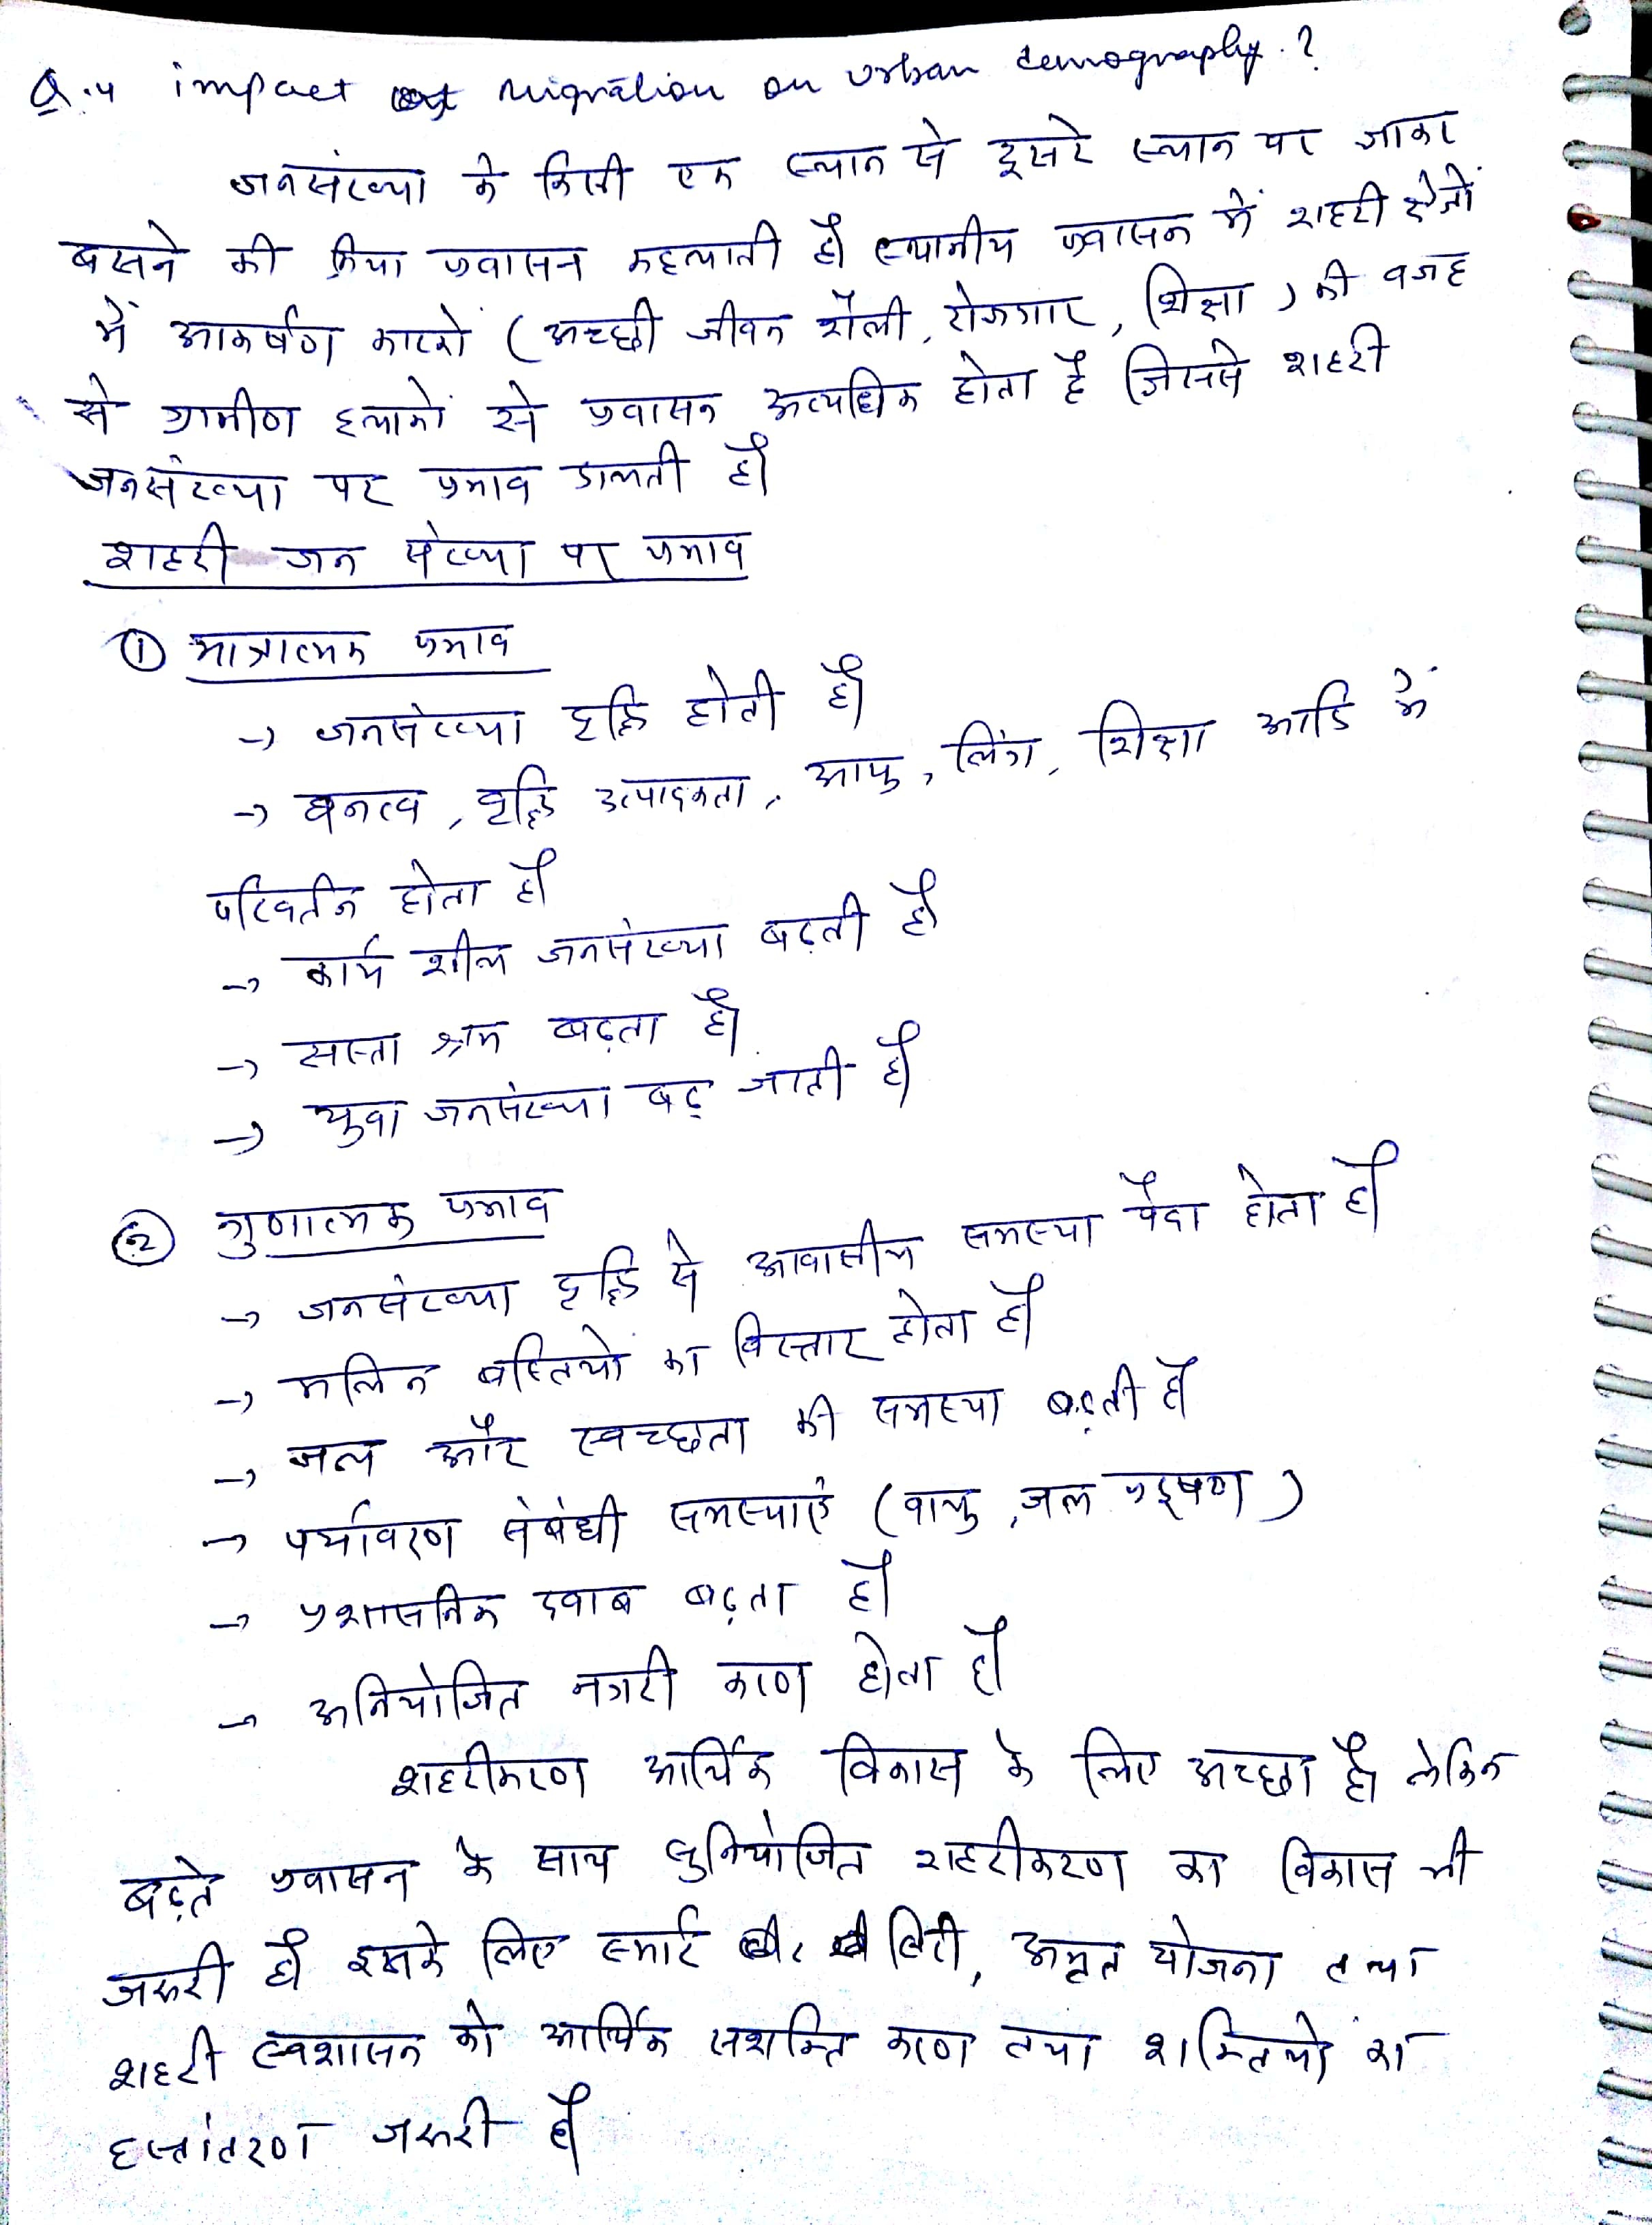 Q.4 impact of migration on urban demography.?
जनसंख्या के किसी एक स्थान से दूसरे स्थान पर जाकर
बसने की क्रिया प्रवासन कहलाती है। स्थानीय प्रवासन में शहरी क्षेत्रों
में आकर्षण कारकों (अच्छी जीवन शैली, रोजगार, शिक्षा) की वजह
से ग्रामीण इलाकों से प्रवासन अत्यधिक होता है जिससे शहरी
जनसंख्या पर प्रभाव डालती है।
शहरी जन संख्या पर प्रभाव
① मात्रात्मक प्रभाव
→ जनसंख्या वृद्धि होती है।
→ घनत्व, वृद्धि उत्पादकता, आयु, लिंग, शिक्षा आदि में
परिवर्तन होता है।
→ कार्य शील जनसंख्या बढ़ती है।
→ सस्ता श्रम बढ़ता है।
→ युवा जनसंख्या बढ़ जाती है।
② गुणात्मक प्रभाव
→ जनसंख्या वृद्धि से आवासीय समस्या पैदा होता है।
→ मलिन बस्तियों का विस्तार होता है।
→ जल और स्वच्छता की समस्या बढ़ती है।
→ पर्यावरण संबंधी समस्याएं (वायु, जल प्रदूषण)
→ प्रशासनिक दवाब बढ़ता है।
→ अनियोजित नगरी करण होता है।
शहरीकरण आर्थिक विकास के लिए अच्छा है। लेकिन
बढ़ते प्रवासन के साथ सुनियोजित शहरीकरण का विकास भी
जरुरी है। इसके लिए स्मार्ट सिटी, अमृत योजना तथा
शहरी स्वशासन को आर्थिक सशक्ति करण तथा शक्तियों का
हस्तांतरण जरुरी है।